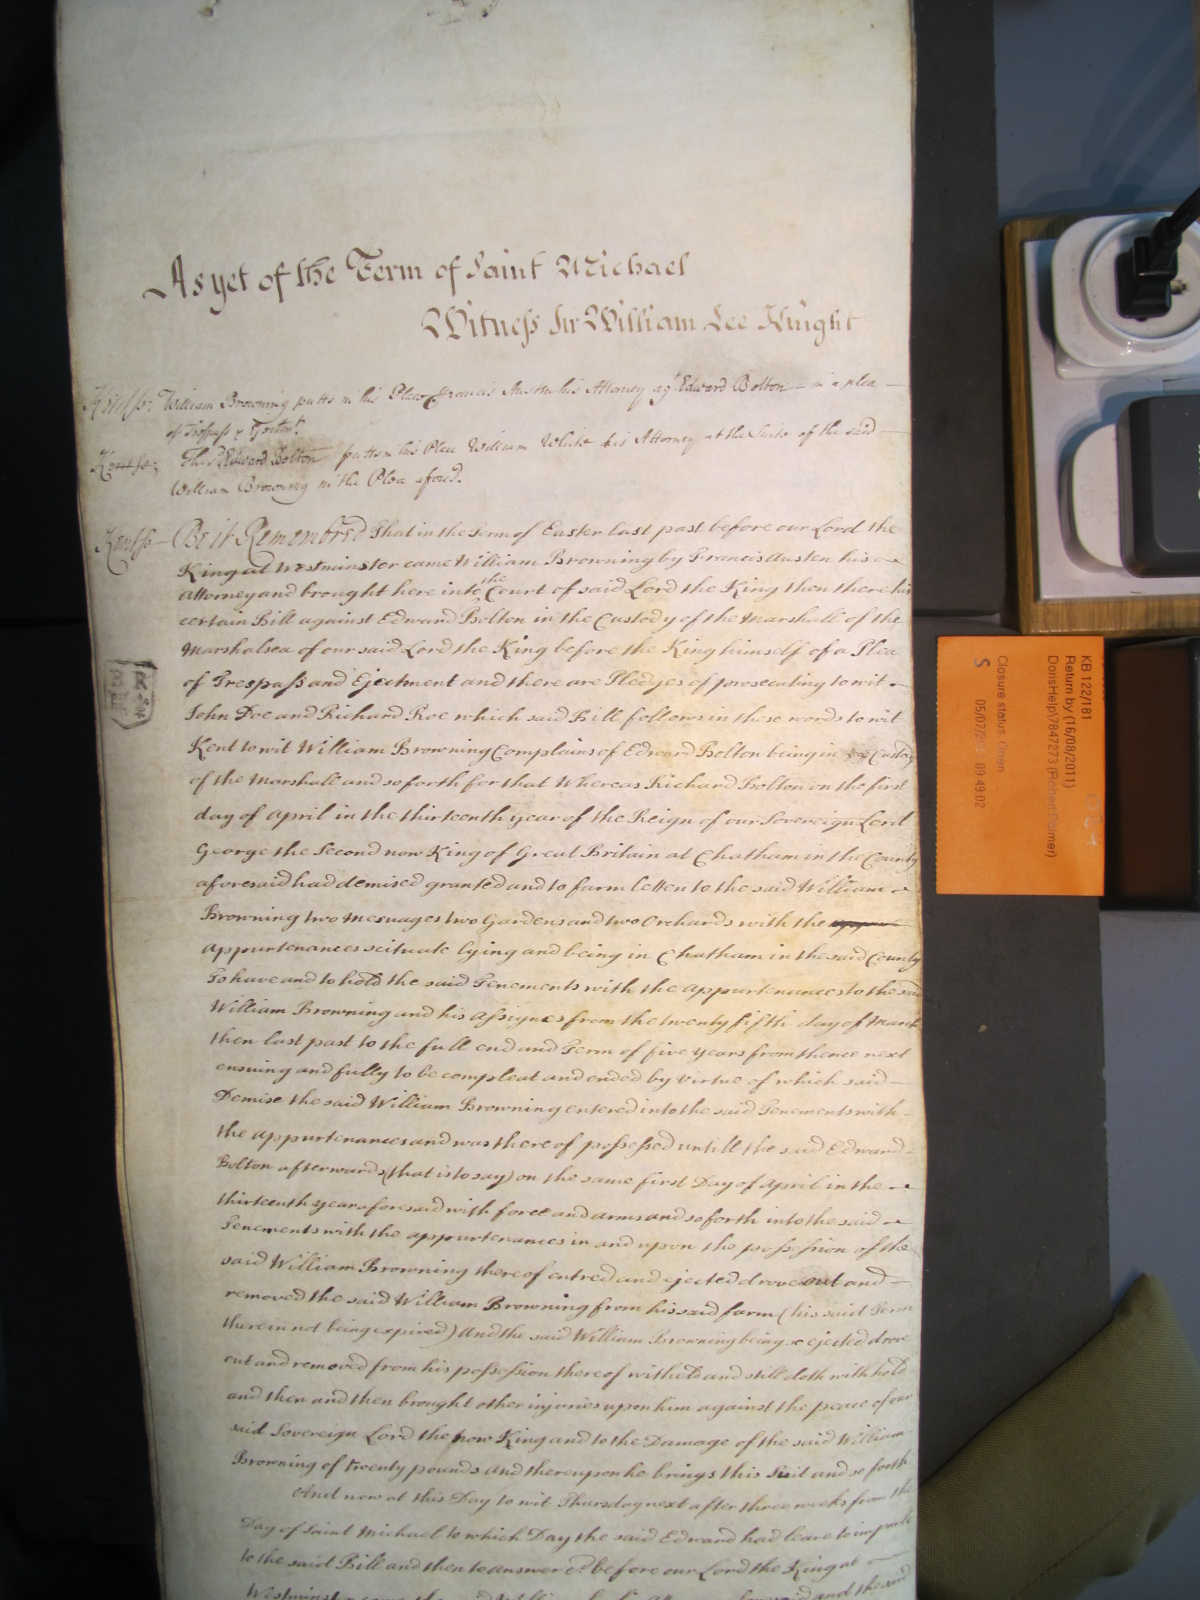 As yet of the Term of Saint Michael
Witness Sir William Lee Knight
Kent ss: William Browning putts in his Place Francis Austen his Attorney agt Edward Bolton in a plea
of Trespass & Ejectmt.
Kent ss: The sd Edward Bolton putts in his Place William White his Attorney at the Suite of the said
William Browning in the Plea aforesd.
Kent ss Be it Remembred That in the Term of Easter last past before our Lord the
King at Westminster came William Browning by Francis Austen his
Attorney and brought here into the Court of said Lord the King then there his
certain Bill against Edward Bolton in the Custody of the Marshall of the
Marshalsea of our said Lord the King before the King himself of a Plea
of Trespass and Ejectment and there are Pledges of prosecuting to wit
John Doe and Richard Roe which said Bill follows in these words to wit
Kent to wit William Browning Complains of Edward Bolton being in the Custody
of the Marshall and so forth for that Whereas Richard Bolton on the first
day of April in the thirteenth year of the Reign of our Sovereign Lord
George the Second now King of Great Britain at Chatham in the County
aforesaid had demised granted and to farm letten to the said William
Browning two Mesuages two Gardens and two Orchards with the
appurtenances scituate lying and being in Chatham in the said County
To have and to hold the said Tenements with the appurtenances to the said
William Browning and his Assignes from the twenty fifth day of March
then last past to the full end and Term of five years from thence next
ensuing and fully to be compleat and ended by virtue of which said
Demise the said William Browning entered into the said Tenements with
the appurtenances and was thereof possessed untill the said Edward
Bolton afterwards (that is to say) on the same first Day of April in the
thirteenth year aforesaid with force and arms and so forth into the said
Tenements with the appurtenances in and upon the possession of the
said William Browning thereof entred and ejected drove out and
removed the said William Browning from his said farm (his said Term
therein not being expired) And the said William Browning being so ejected drove
out and removed from his possession thereof witheld and still doth withhold
and then and then brought other injuries upon him against the peace of our
said Sovereign Lord the now King and to the Damage of the said William
Browning of twenty pounds And thereupon he brings this Suit and so forth
And now at this Day to wit Thursday next after three weeks from the
Day of Saint Michael to which Day the said Edward had leave to imparle
to the said Bill and then to answer &c before our Lord the King at
Westminster came the said William by his Attorney aforesaid and the said
KB 122/181
Return by (16/08/2011)
DorisHelp\7847273 (Robert Palmer)
Closure status: Open
S 05/07/ 09:49:02